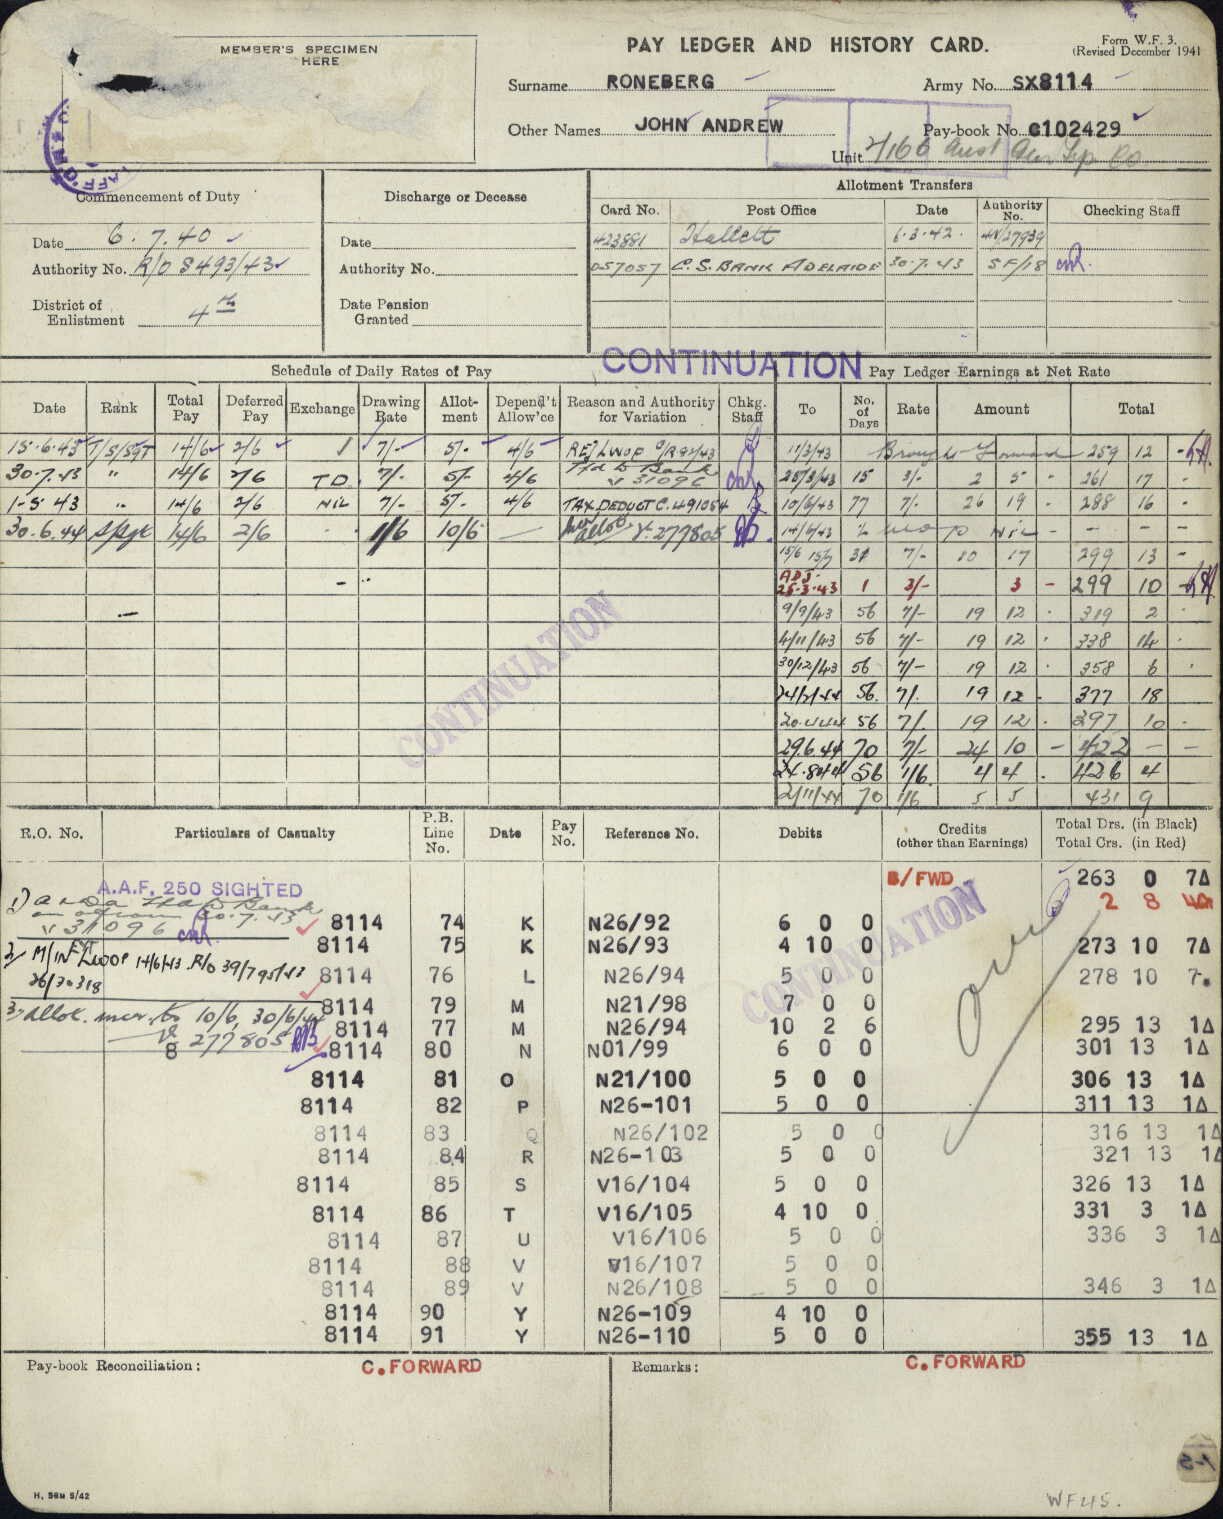 MEMBER'S SPECIMEN
HERE
PAY LEDGER AND HISTORY CARD.
Form W.F. 3.
(Revised December 1941
Surname RONEBERG
Army No. SX8114
Other Names JOHN ANDREW
Pay-book No. C102429
Unit 2/166 Aust Gen Co
Commencement of Duty
Date 6.7.40
Authority No. R/O S493/43
District of Enlistment 4th
Discharge or Decease
Date
Authority No.
Date Pension Granted
Allotment Transfers
Card No. Post Office Date Authority No. Checking Staff
423881 Hallett 6.3.42. 4V/27939
057057 C.S. BANK ADELAIDE 30.7.43 SF/18
CONTINUATION
Schedule of Daily Rates of Pay
Date Rank Total Pay Deferred Pay Exchange Drawing Rate Allot-ment Depend't Allow'ce Reason and Authority for Variation Chkg. Staff
15.6.43 T/S/SGT 14/6 2/6 7/- 5/- 4/6 RE/LWOP
30.7.43 " 14/6 2/6 T.D. 7/- 5/- 4/6 Bank V 31096
1-5 43 " 14/6 2/6 NIL 7/- 5/- 4/6 TAX DEDUCT C.491054
30.6.44 S/Sgt 14/6 2/6 1/6 10/6 — allot V.277805
Pay Ledger Earnings at Net Rate
To No. of Days Rate Amount Total
11/3/43 Brought Forward 259 12 -
25/3/43 15 3/- 2 5 - 261 17 -
10/6/43 77 7/- 26 19 - 288 16 -
14/6/43 LWOP NIL - - - -
15/6 15/7 31 7/- 10 17 299 13 -
ADJ. 25.3.43 1 3/- 3 - 299 10 -
9/9/43 56 7/- 19 12 - 319 2 -
4/11/43 56 7/- 19 12 - 338 14 -
30/12/43 56 7/- 19 12 - 358 6 -
24/2/44 56 7/- 19 12 - 377 18
20.4.44 56 7/- 19 12 - 397 10 -
29.6.44 70 7/- 24 10 - 422 - -
24.8.44 56 1/6 4 4 - 426 4
2/11/44 70 1/6 5 5 431 9
CONTINUATION
R.O. No. Particulars of Casualty P.B. Line No. Date Pay No. Reference No. Debits Credits (other than Earnings) Total Drs. (in Black) Total Crs. (in Red)
B/FWD 263 0 7Δ
2 8
A.A.F. 250 SIGHTED
1) Bank
30.7.43
V 31096
2/ M/IN LWOP 14/6/43 R/O 39/795/43
26/30318
3) Allot. incr. to 10/6 30/6/44
277805
8114 74 K N26/92 6 0 0
8114 75 K N26/93 4 10 0 273 10 7Δ
8114 76 L N26/94 5 0 0 278 10 7.
8114 79 M N21/98 7 0 0
8114 77 M N26/94 10 2 6 295 13 1Δ
8 8114 80 N N01/99 6 0 0 301 13 1Δ
8114 81 O N21/100 5 0 0 306 13 1Δ
8114 82 P N26-101 5 0 0 311 13 1Δ
8114 83 Q N26/102 5 0 0 316 13 1Δ
8114 84 R N26-103 5 0 0 321 13 1Δ
8114 85 S V16/104 5 0 0 326 13 1Δ
8114 86 T V16/105 4 10 0 331 3 1Δ
8114 87 U V16/106 5 0 0 336 3 1Δ
8114 88 V V16/107 5 0 0
8114 89 V N26/108 5 0 0 346 3 1Δ
8114 90 Y N26-109 4 10 0
8114 91 Y N26-110 5 0 0 355 13 1Δ
CONTINUATION
over
Pay-book Reconciliation: C.FORWARD
Remarks: C.FORWARD
H. 56M 5/42
WF45.